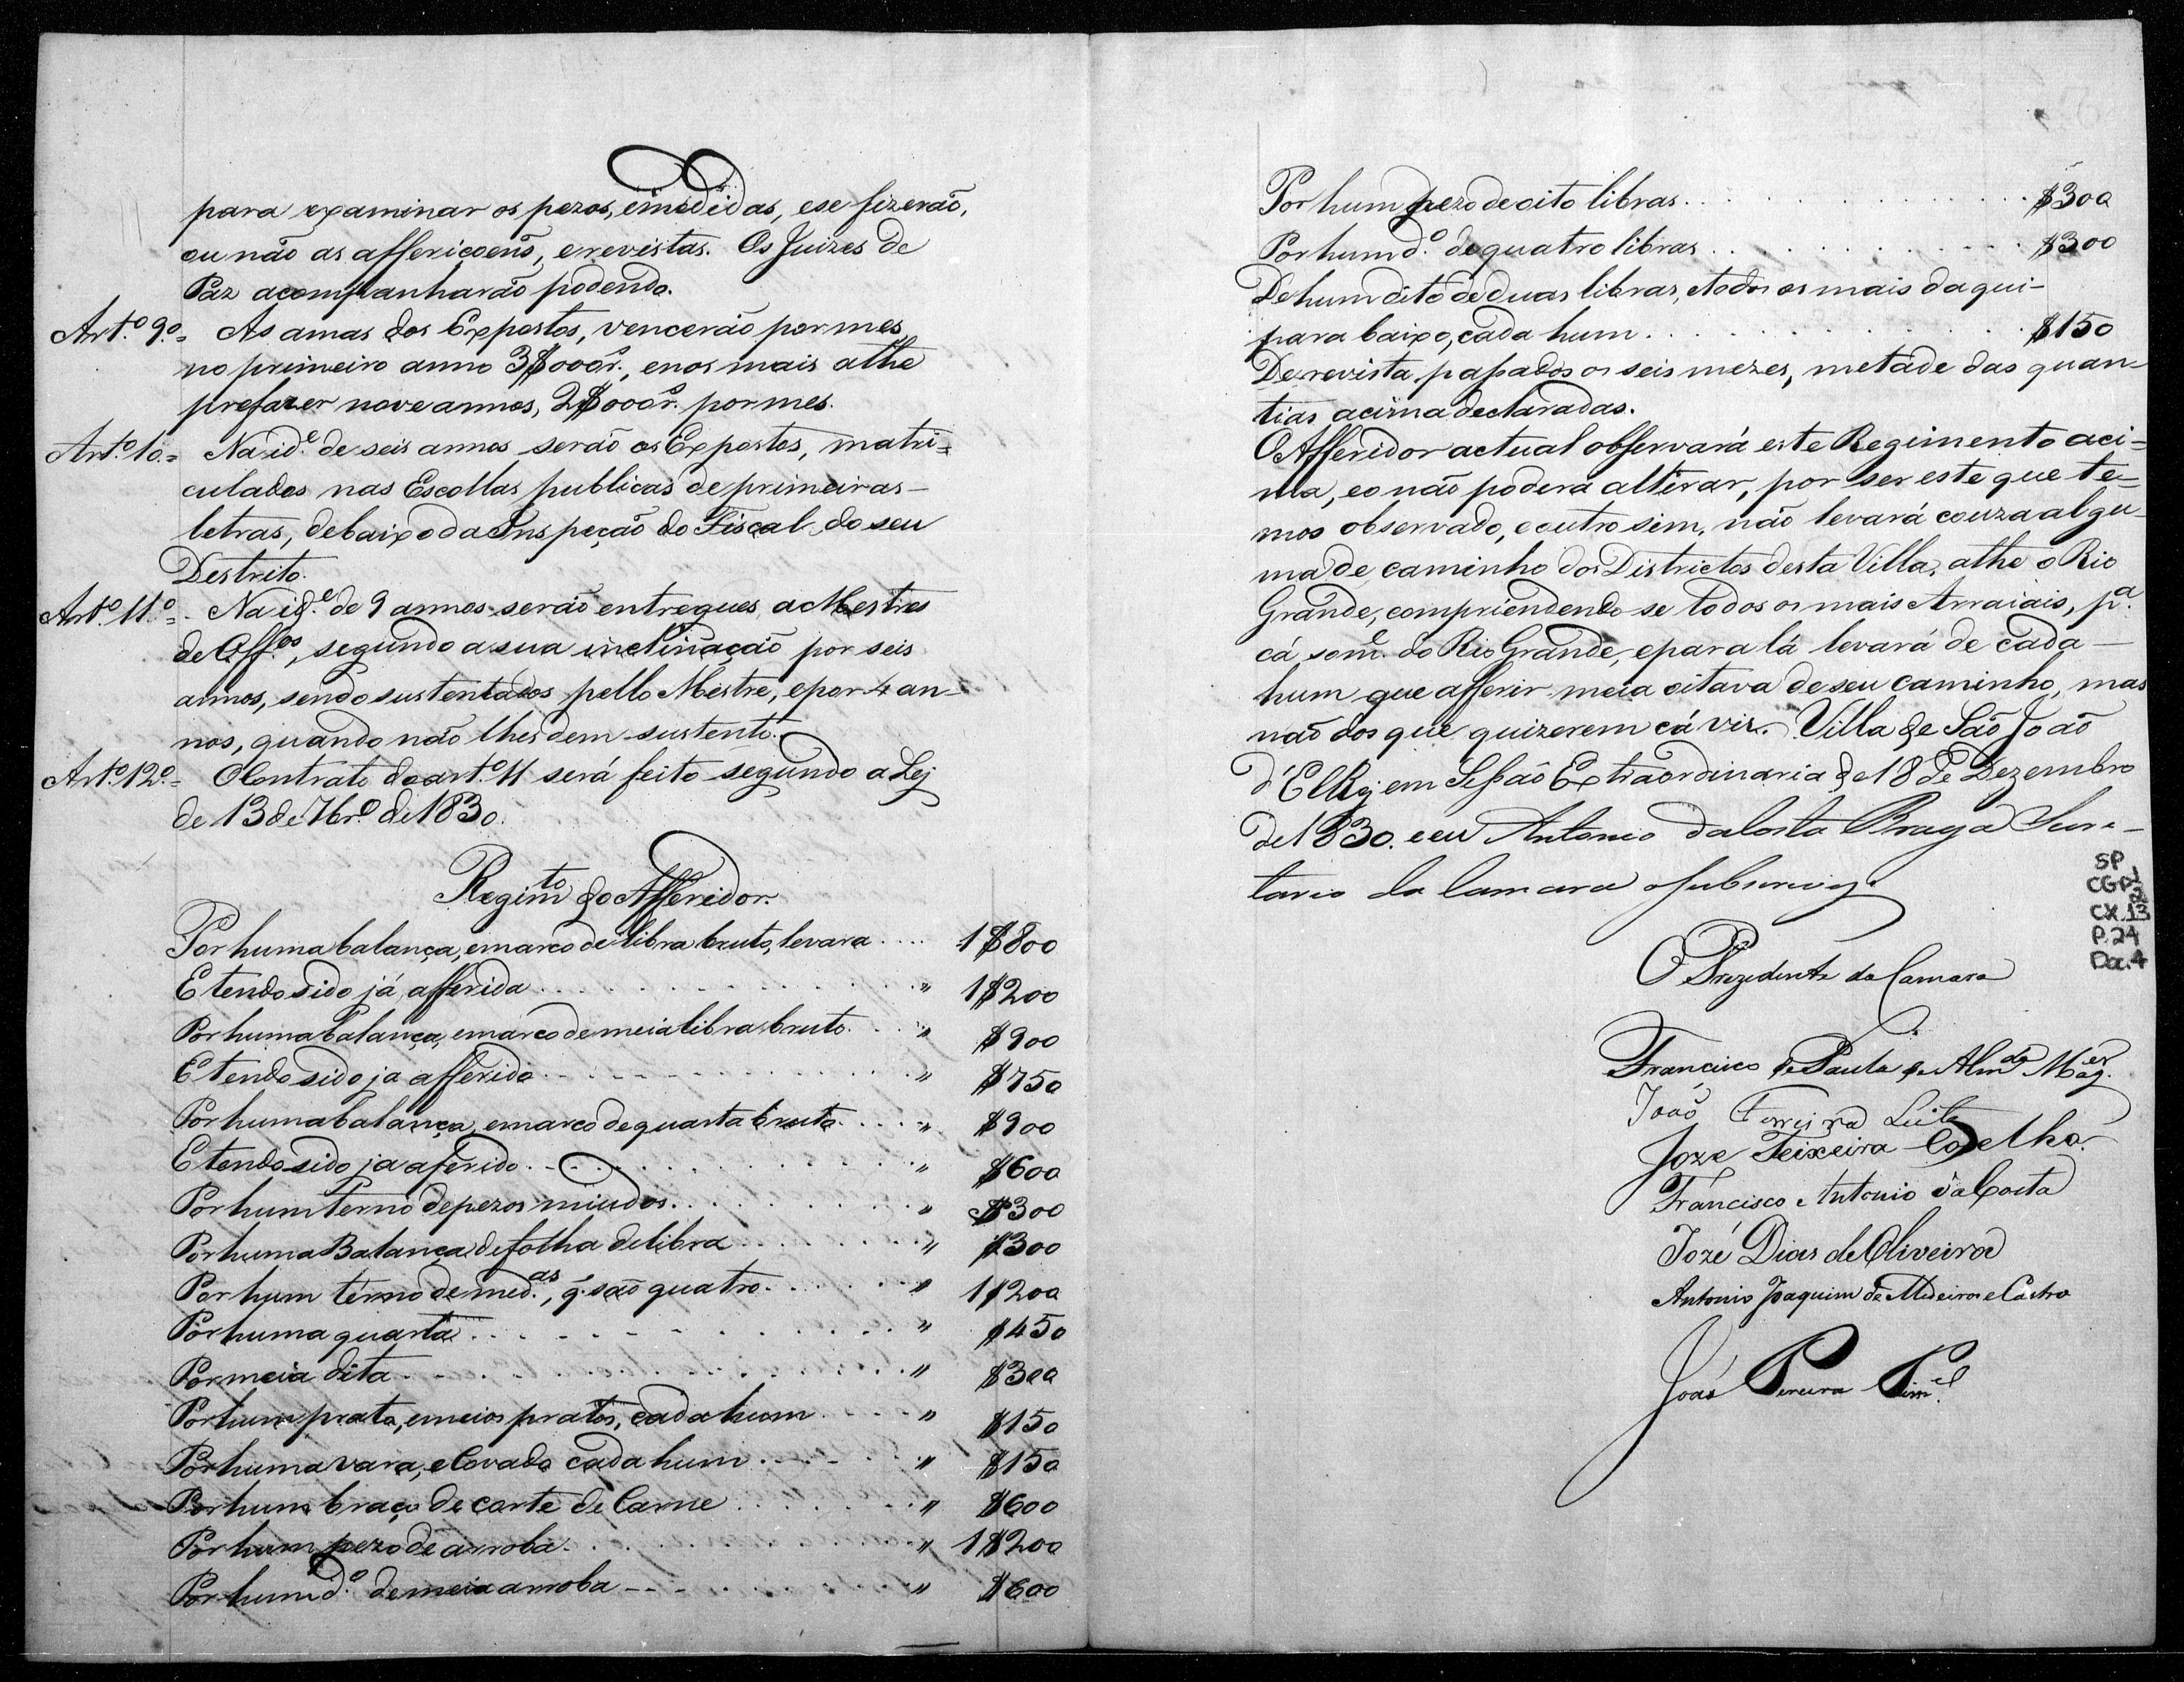 para examinar os pezos, e medidas, e se fizerão,
ou não as affericoens, e revistas. Os Juizes de
Paz acompanharão podendo.
Art.º 9.º = As amas dos Expostos, vencerão por mes
no primeiro anno 3$000 r.s, e nos mais athe
prefazer nove annos, 2$000 r.s por mes.
Art.º 10. = Na id.e de seis annos serão os Expostos, matri=
culados nas Escollas publicas de primeiras
letras, debaixo da Inspeção do Fiscal do seu
Destrito.
Art.º 11.º = Na id.e de 9 annos serão entregues a Mestres
de Off.os, segundo a sua inclinação por seis
annos, sendo sustentados pello Mestre, e por 4 an-
nos, quando não lhes dem sustento.
Art.º 12.º = O Contrato do art.º 11 será feito segundo a Lej
de 13 de 7br.º de 1830.
Regim.to do Afferidor.
Por huma balança, e marco de libra bruto, levara .... 1$800
E tendo sido já afferida ...... " 1$200
Por huma balança, e marco de meia libra bruto .... " $900
E tendo sido ja afferido ...... " $750
Por huma balança, e marco de quarta bruto .... " $900
E tendo sido ja aferido ...... " $600
Por hum terno de pezos miudos ...... " $300
Por huma Balança de folha de libra ...... " $300
Por hum terno de med.as, q. são quatro ...... " 1$200
Por huma quarta ...... " $450
Por meia dita ...... " $300
Por hum prato, e meios pratos, cada hum .... " $150
Por huma vara, e Covado cada hum .... " $150
Por hum braço de corte de Carne ...... " $600
Por hum pezo de arroba ...... " 1$200
Por hum d.º de meia arroba ...... " $600
Por hum pezo de oito libras ...... $300
Por hum d.º de quatro libras ...... $300
De hum dito de duas libras, e todos os mais daqui
para baixo, cada hum ...... $150
De revista passados os seis mezes, metade das quan
tias acima declaradas.
O Afferidor actual observará este Regimento aci=
ma, e o não poderá alterar, por ser este que te=
mos observado, e outro sim, não levará couza algu-
ma de caminho dos Districtos desta Villa, athe o Rio
Grande, compriendendo se todos os mais Arraiais, p.a
cá som.e do Rio Grande, e para lá levará de cada
hum que afferir meia oitava de seu caminho, mas
não dos que quizerem cá vir. Villa de São João
d'El Rej em Sessão Extraordinaria de 18 de Dezembro
de 1830. e eu Antonio da Costa Braga Secre-
tario da Camara o subscrevy.
O Prezidente da Camara
Francisco de Paula de Alm.da Mag.es
João Ferreira Leite
Joze Teixeira Coelho
Francisco Antonio da Costa
Jozé Dias de Oliveira
Antonio Joaquim de Medeiros e Castro
João Pereira Pim.el
SP
CGP 1
CX. 13
P. 24
Doc. 4